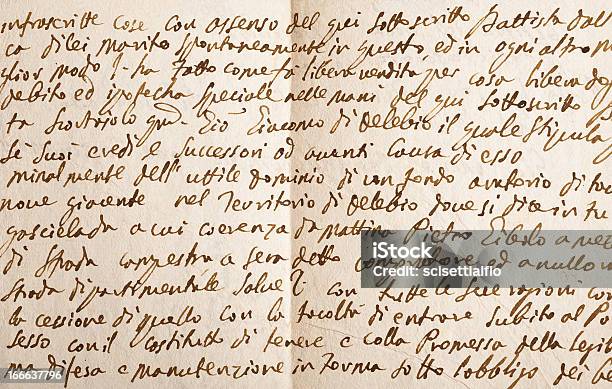 infrascritte Cose con assenso del qui sottoscritto Battista dall
ca di lei marito spontaneamente in questo, ed in ogni altro
glior modo ha fatto come fà libera vendita per cosa libera
debito ed ipoteca speciale nelle mani del qui sottoscritto
ta Giacomo di Delebio il quale stipula
Suoi eredi e Successori ed aventi Causa di esso
minalmente dell' uttile dominio di un fondo aratorio di
noue giacente nel Territorio di Delebio doue si dice in
gascielada a cui coerenza da mattina Pietro
di Strada a sera detto compratore ed a nullo
strada dipartimentale Salue con tutte le sue ragioni
la cessione di quello con la facoltà di entrare Subito al
sesso con il Costituto di tenere e colla Promessa della
difesa e manutenzione in forma sotto l'obbligo dei
iStock
Credit: scisettialfio
166637796